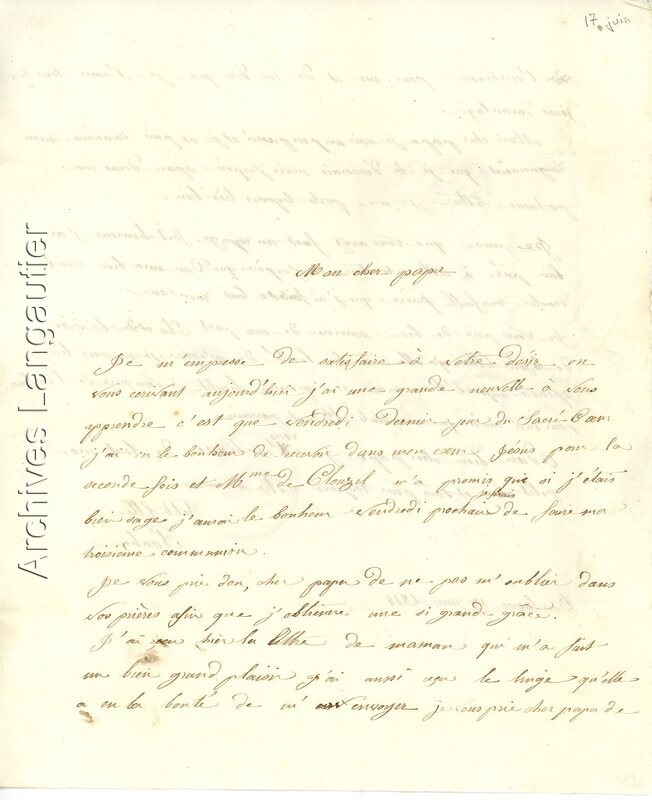 17 juin
Archives Langautier
Mon cher papa
Je m'empresse de satisfaire à votre désir en
vous ecrivant aujourd'hui j'ai une grande nouvelle à vous
apprendre c'est que vendredi dernier jour du Sacré-Cœur
j'ai eu le bonheur de recevoir dans mon cœur Jesus pour la
seconde fois et Mme de Clouzel m'a promis que si j'étais
bien sage j'aurai le bonheur vendredi prochain de faire ma
troisième communion.
Je vous prie don, cher papa de ne pas m'oublier dans
vos prières afin que j'obtienne une si grand grace.
J'ai reçu hier la lettre de maman qui m'a fait
un bien grand plaisir j'ai aussi reçu le linge qu'elle
a eu la bonté de m' envoyer je vous prie cher papa de